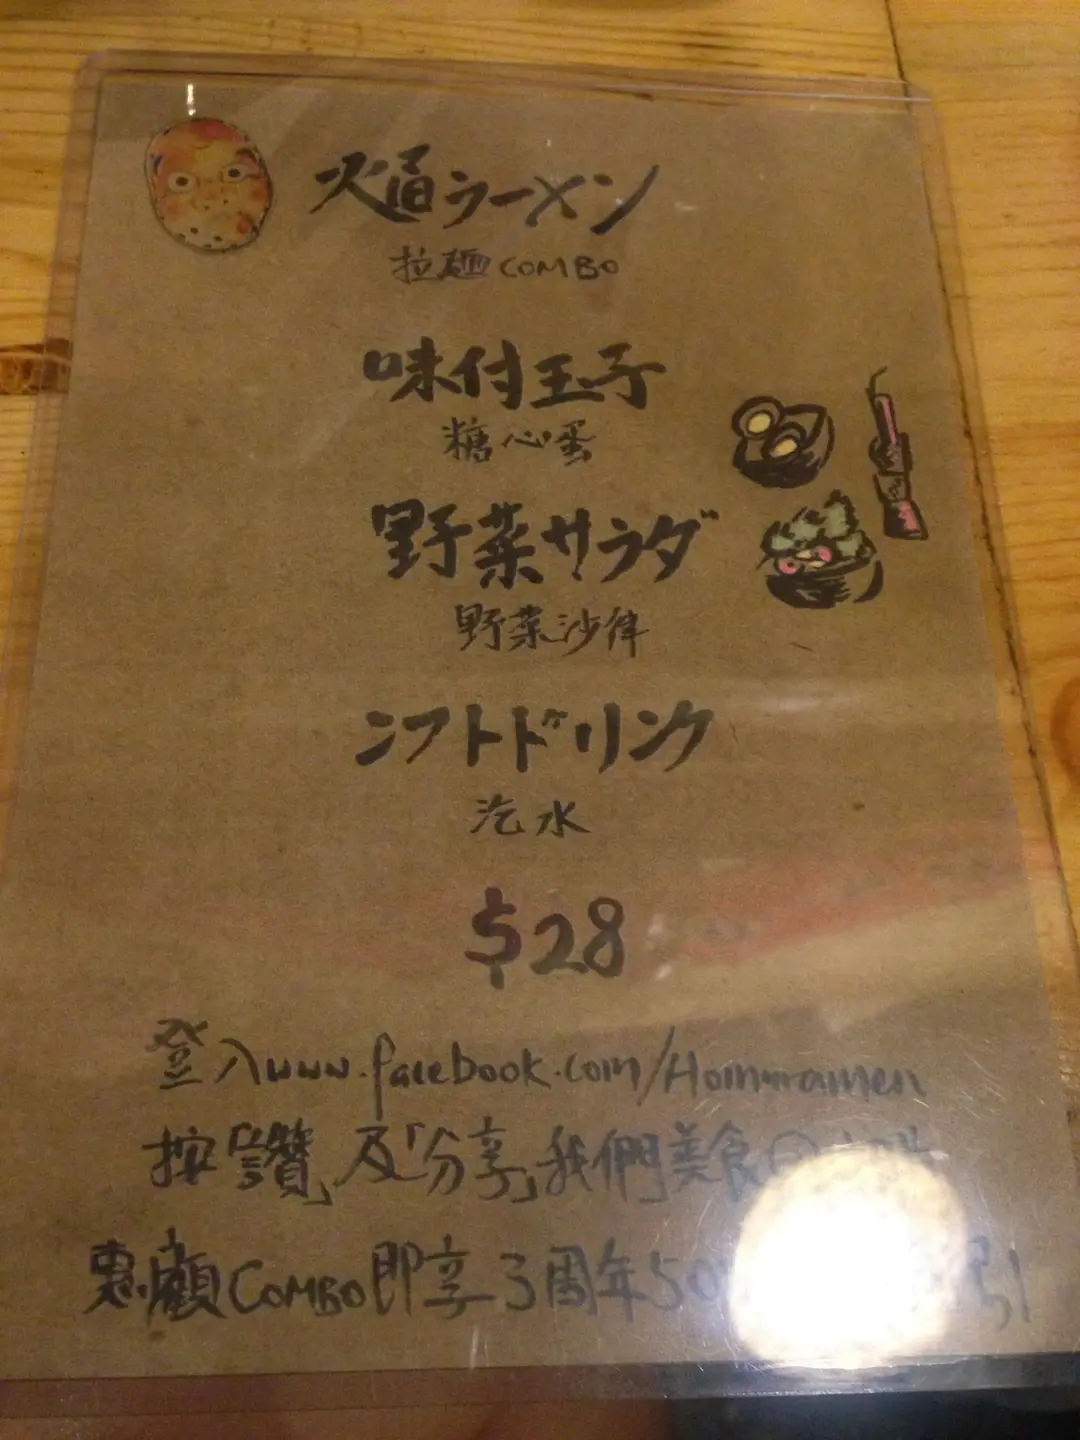 火道ラーメン
拉麺COMBO
味付玉子
糖心蛋
野菜サラダ
野菜沙律
ソフトドリンク
汽水
$28
登入www.facebook.com/Hommramen
按「讚」及「分享」我們美食
惠顧COMBO即享3周年50